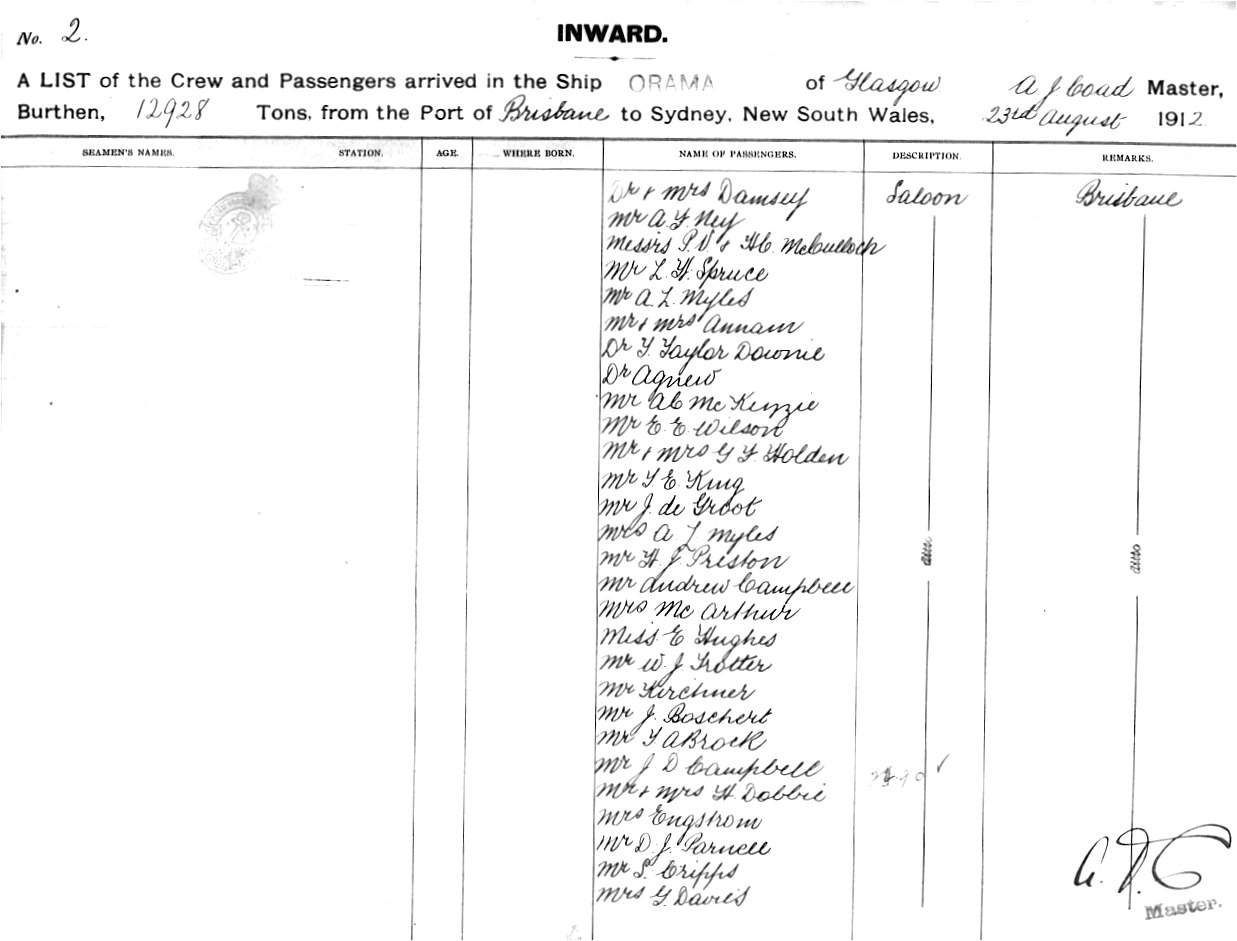 No. 2.
INWARD.
A LIST of the Crew and Passengers arrived in the Ship ORAMA of Glasgow A J Coad Master,
Burthen, 12928 Tons, from the Port of Brisbane to Sydney, New South Wales, 23rd August 1912
SEAMEN'S NAMES. STATION. AGE. WHERE BORN. NAME OF PASSENGERS. DESCRIPTION. REMARKS.
Dr & Mrs Damsey Saloon Brisbane
Mr A. F. Ney
Messrs P. V. & H.C. McCulloch
Mr L. H. Spruce
Mr A. L. Myles
Mr & Mrs Annam
Dr F. Taylor Downie
Dr Agnew
Mr A C McKenzie
Mr E. E. Wilson
Mr & Mrs G F Holden
Mr F. E. King
Mr J. de Groot
Mrs A L Myles
Mr H. J. Preston ditto ditto
Mr Andrew Campbell
Mrs McArthur
Miss E Hughes
Mr W. J. Trotter
Mr Kirchner
Mr J. Boschert
Mr F A Brock
Mr J D Campbell
Mr & Mrs H. Dobbie
Mrs Engstrom
Mr D. J. Parnell
Mr S. Cripps
Mrs G. Davies
A. J. C
Master.